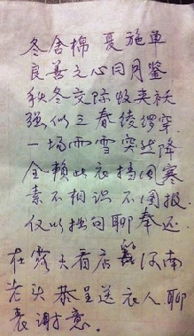 冬舍棉 夏施单
良善之心同月鉴
秋冬交际牧夹袄
强似三春绫罗穿
一场雨雪突然降
全赖此衣挡风寒
素不相识不图报
仅以拙句聊奉还
在 大有店 河南
老头恭呈送衣人聊
表谢意。